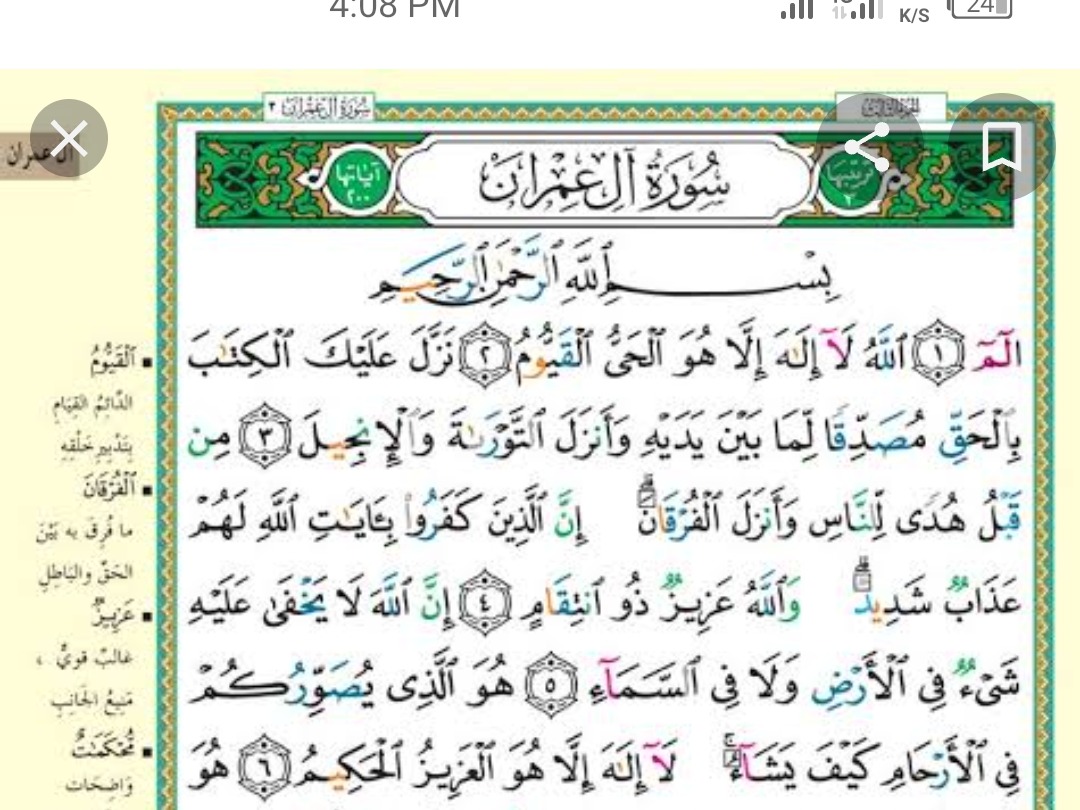 4:08 PM
K/S
24
سُورَةُ آلِ عِمْرَان ٣
الجزء الثالث
آل عمران
ترتيبها ٣
سُورَةُ آلِ عِمْرَان
آياتها ٢٠٠
بِسْمِ ٱللَّهِ ٱلرَّحْمَٰنِ ٱلرَّحِيمِ
الٓمٓ ١ ٱللَّهُ لَآ إِلَٰهَ إِلَّا هُوَ ٱلْحَىُّ ٱلْقَيُّومُ ٢ نَزَّلَ عَلَيْكَ ٱلْكِتَٰبَ
بِٱلْحَقِّ مُصَدِّقًا لِّمَا بَيْنَ يَدَيْهِ وَأَنزَلَ ٱلتَّوْرَىٰةَ وَٱلْإِنجِيلَ ٣ مِن
قَبْلُ هُدًى لِّلنَّاسِ وَأَنزَلَ ٱلْفُرْقَانَ ۗ إِنَّ ٱلَّذِينَ كَفَرُوا۟ بِـَٔايَٰتِ ٱللَّهِ لَهُمْ
عَذَابٌ شَدِيدٌ ۗ وَٱللَّهُ عَزِيزٌ ذُو ٱنتِقَامٍ ٤ إِنَّ ٱللَّهَ لَا يَخْفَىٰ عَلَيْهِ
شَىْءٌ فِى ٱلْأَرْضِ وَلَا فِى ٱلسَّمَآءِ ٥ هُوَ ٱلَّذِى يُصَوِّرُكُمْ
فِى ٱلْأَرْحَامِ كَيْفَ يَشَآءُ ۚ لَآ إِلَٰهَ إِلَّا هُوَ ٱلْعَزِيزُ ٱلْحَكِيمُ ٦ هُوَ
ٱلْقَيُّومُ
الدَّائِمُ القِيَامِ
بِتَدْبِيرِ خَلْقِهِ
ٱلْفُرْقَانَ
ما فُرِقَ به بَيْنَ
الحَقِّ والبَاطِلِ
عَزِيزٌ
غالبٌ قويٌّ ،
مَنِيعُ الجَانِبِ
مُّحْكَمَٰتٌ
وَاضِحَات